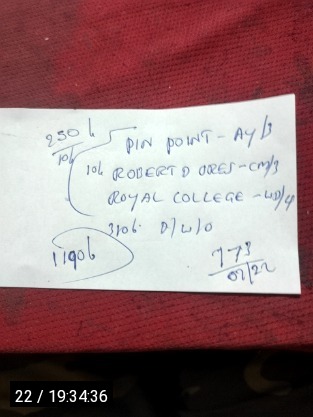 250 h
10h
PIN POINT - AY/3
10h ROBERT D ORES - CM/3
ROYAL COLLEGE - WD/4
310h D/W/O
1190h
773
02/22
22 / 19:34:36